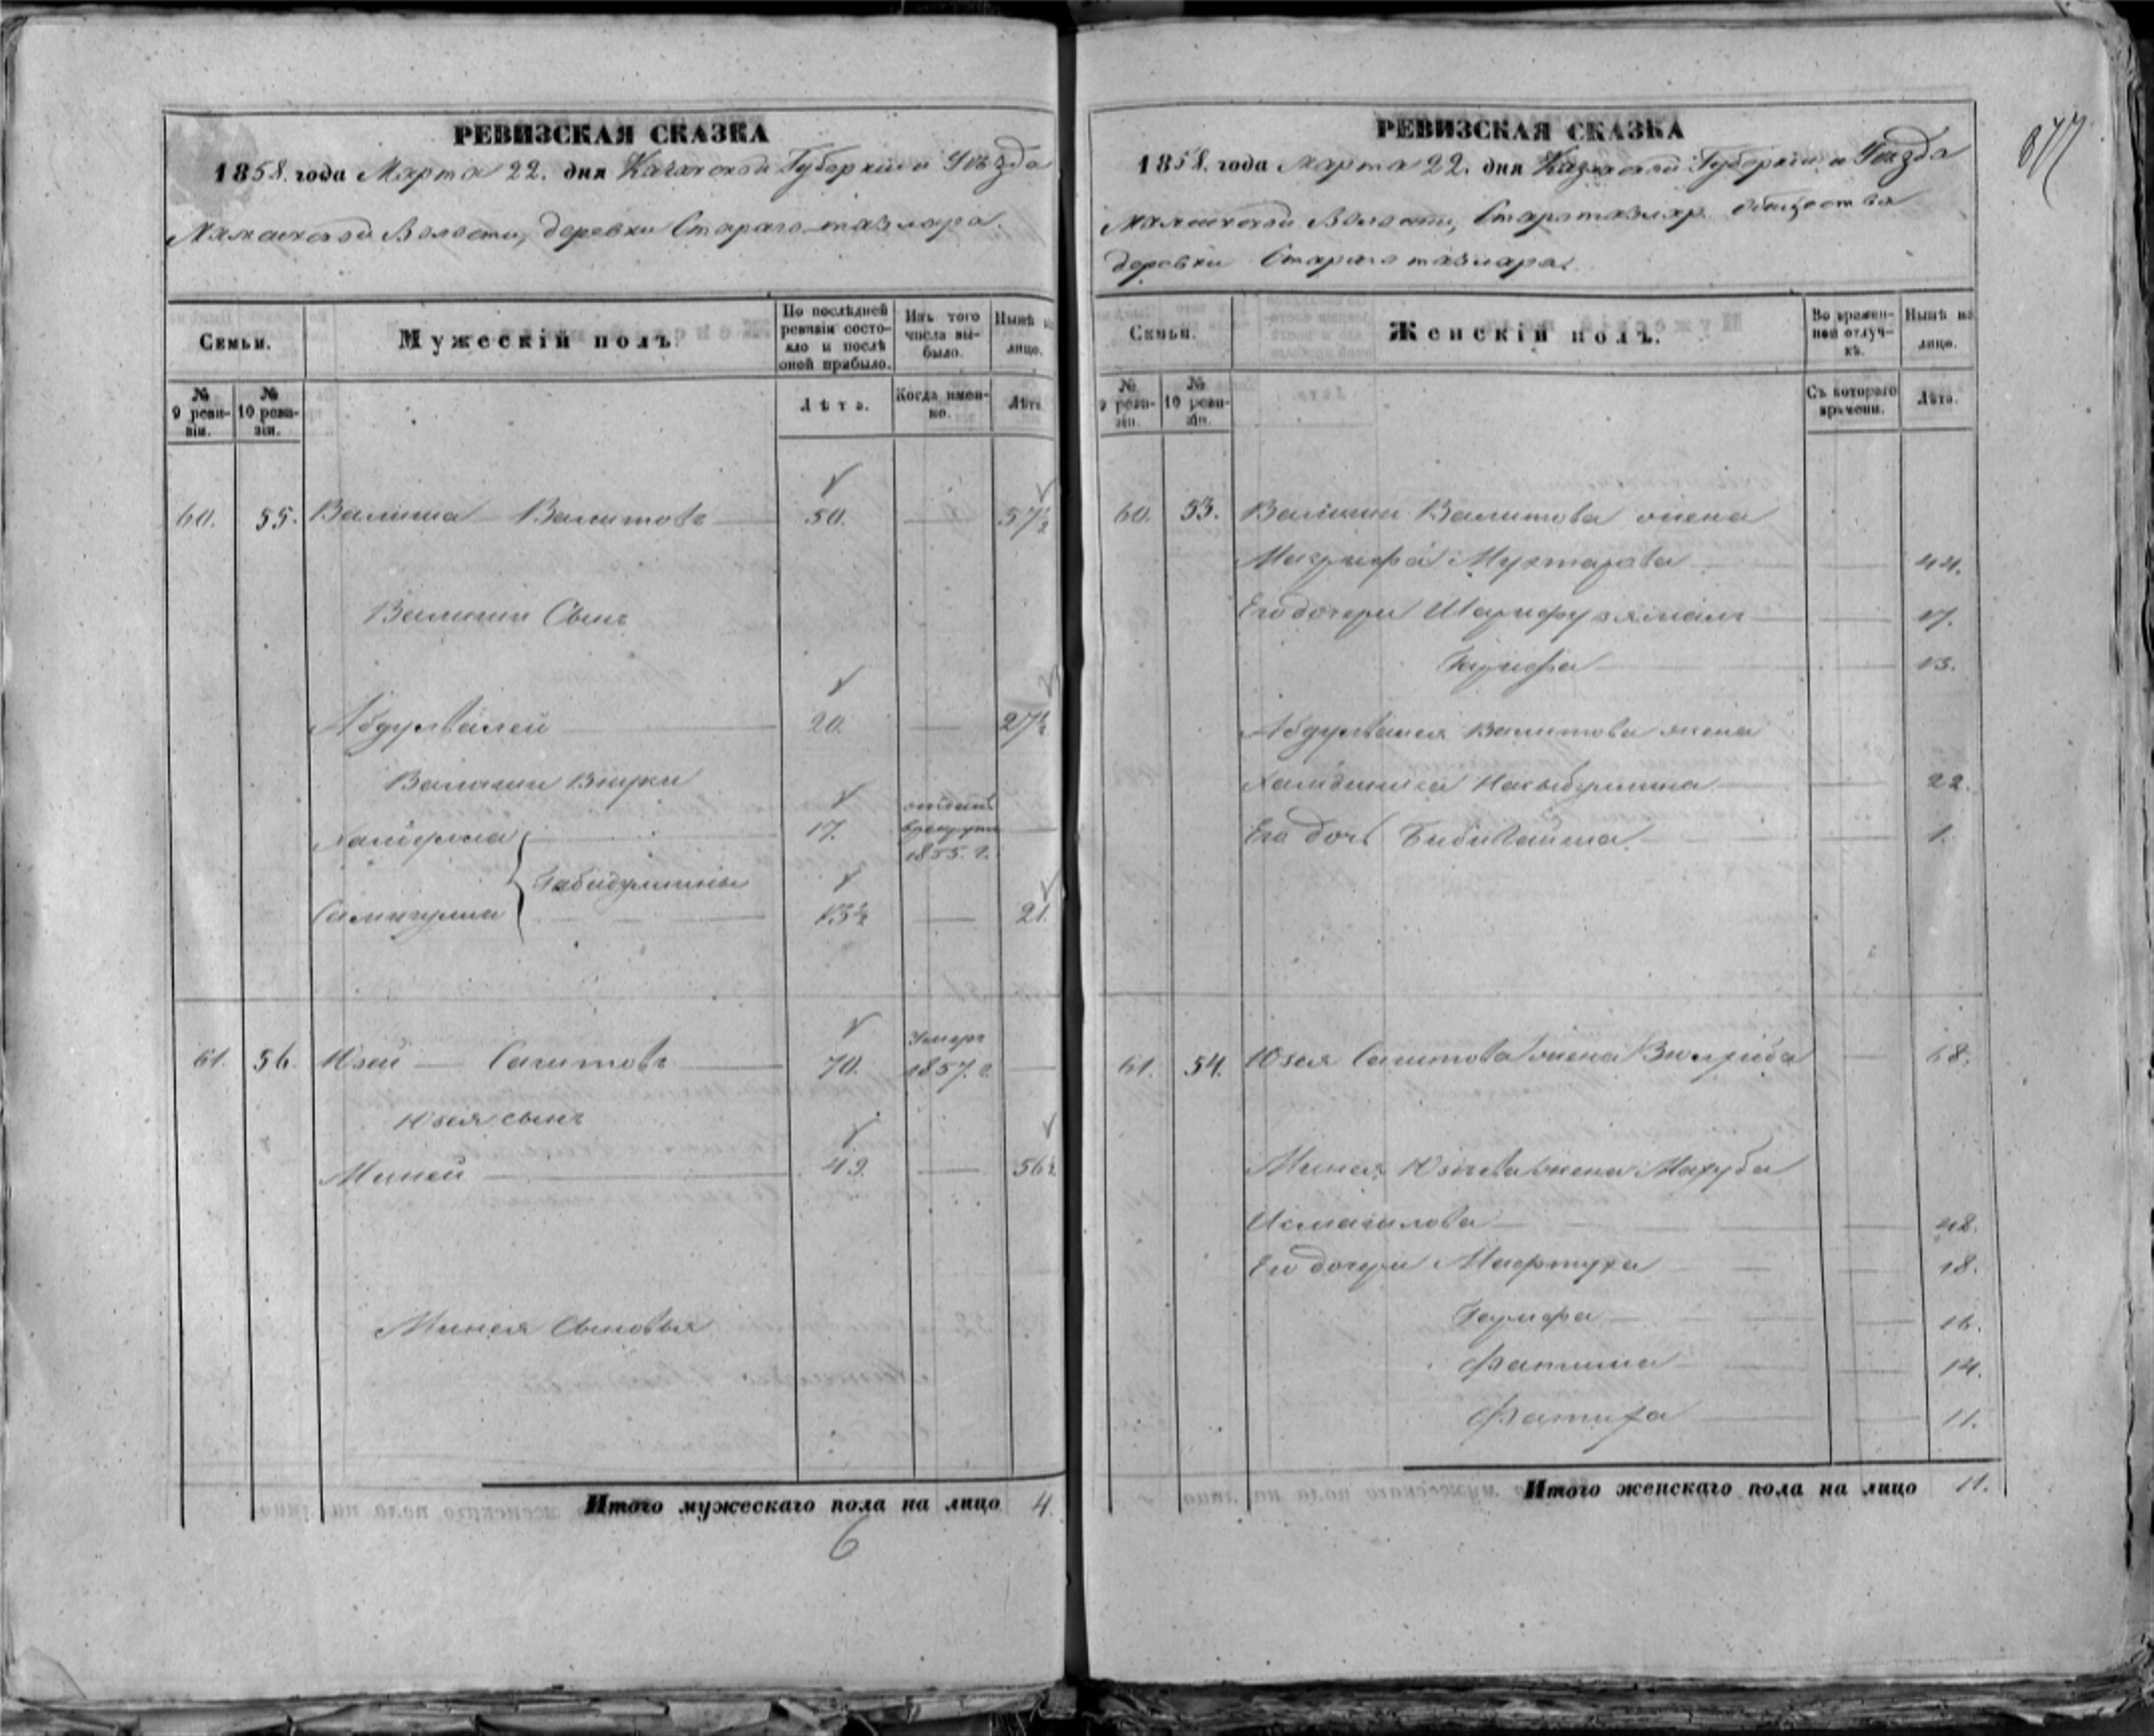 РЕВИЗСКАЯ СКАЗКА
1858. года Марта 22. дня Казанской Губернии и Уѣзда
Мамской Волости, деревни Стараго тазлара.
Семьи.
Мужескій полъ.
По послѣдней ревизіи состояло и послѣ оной прибыло.
Изъ того числа выбыло.
Нынѣ на лицо.
№ 9 ревизіи.
№ 10 ревизіи.
Лѣта.
Когда именно.
Лѣта
60. 55. Валиша Валитовъ 50. 57½
Валиши Сынъ
Абдулвалей 20. 27½
Валиши Внуки
17. отданъ в рекруты 1855. г.
Габидуллины
Самигулла 13½ 21.
61. 56. Юзей Сагитовъ 70. Умеръ 1857. г.
Юзея сынъ
Миней 49. 56½
Минея Сыновья
Итого мужескаго пола на лицо 4.
6
877
РЕВИЗСКАЯ СКАЗКА
1858. года Марта 22. дня Казанской Губерніи и Уѣзда
Волости, Старотазлар. общества
деревни Стараго тазлара.
Семьи.
Женскій полъ.
Во временной отлучкѣ.
Нынѣ на лицо.
№ 9 ревизіи.
№ 10 ревизіи.
Съ котораго времени.
Лѣта.
60. 53. Валиши Валитова жена
Магрифа Мухтарова 44.
Его дочери Шарифузямалъ 17.
Гарифа 13.
Абдулвалея Валитова жена
Хамдениса Насыбуллина 22.
Его дочь Бибигайша 1.
61. 54. Юзея Сагитова жена 68.
Минея Юзеева жена Махуба
Исмагилова 48.
Его дочери Мафтуха 18.
Гарифа 16.
Фатима 14.
Фатиха 11.
Итого женскаго пола на лицо 11.